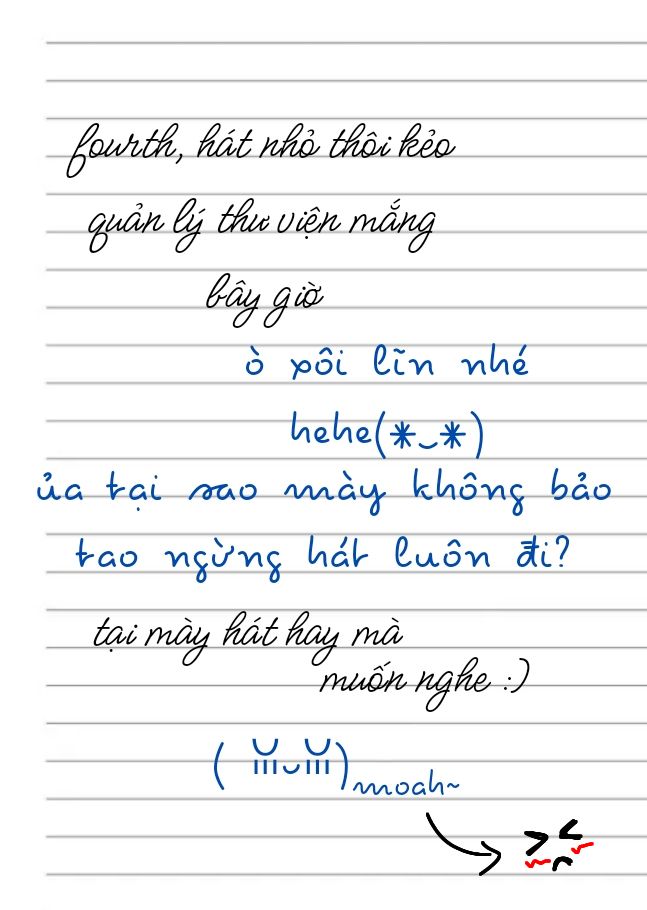 fourth, hát nhỏ thôi kẻo
quản lý thư viện mắng
bây giờ
ò xôi lĩn nhé
hehe(*‿*)
ủa tại sao mày không bảo
tao ngừng hát luôn đi?
tại mày hát hay mà
muốn nghe :)
moah~